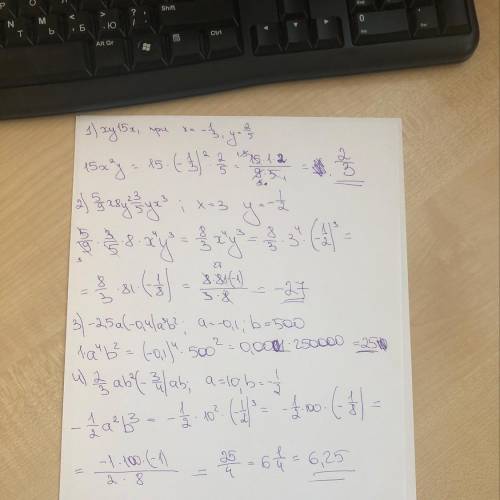 Shift
Alt Gr
Ctrl
0
Ins
1) xy15x, при x = -1/3, y = 2/5
15x²y = 15·(-1/3)²·2/5 = 15·1·2/9·5 = 2/3
2) 5/9 x8y² 3/5 yx³ ; x=3 y = -1/2
5/9 · 3/5 · 8 · x⁴y³ = 8/3 x⁴y³ = 8/3 · 3⁴ · (-1/2)³ =
= 8/3 · 81 · (-1/8) = 8·81·(-1)/3·8 = -27
3) -2,5a(-0,4)a³b² ; a=-0,1; b=500
1a⁴b² = (-0,1)⁴ · 500² = 0,0001 · 250000 = 25
4) 2/3 ab²(-3/4)ab; a=10, b=-1/2
-1/2 a²b³ = -1/2 · 10² · (-1/2)³ = -1/2 · 100 · (-1/8) =
= -1·100·(-1)/2·8 = 25/4 = 6 1/4 = 6,25